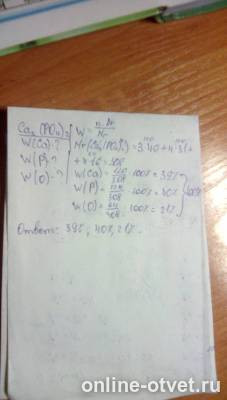 Ca₃(PO₄)₂ | W = n·Ar / Mr
W(Ca)-? | Mr(Ca₃(PO₄)₂) = 3·40+4·31+
W(P)-? | +4·16 = 308
W(O)-? | W(Ca) = 120/308 · 100% = 39%
W(P) = 124/308 · 100% = 40%
W(O) = 64/308 · 100% = 21%
100%
Ответ: 39%, 40%, 21%.
online-otvet.ru